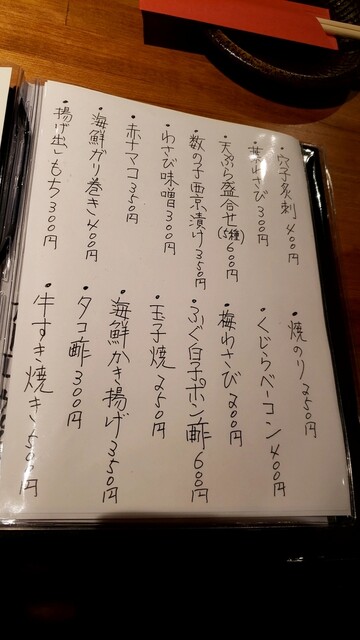 ・穴子炙刺 400円
わさび 300円
・天ぷら盛合せ(5種)600円
・数の子西京漬け350円
・わさび味噌300円
・赤ナマコ350円
・海鮮ガリ巻き400円
・揚げ出しもち300円
・焼のり250円
・くじらベーコン400円
・梅わさび200円
・ふぐ白子ポン酢600円
・玉子焼250円
・海鮮かき揚げ350円
・タコ酢300円
・牛すき焼き